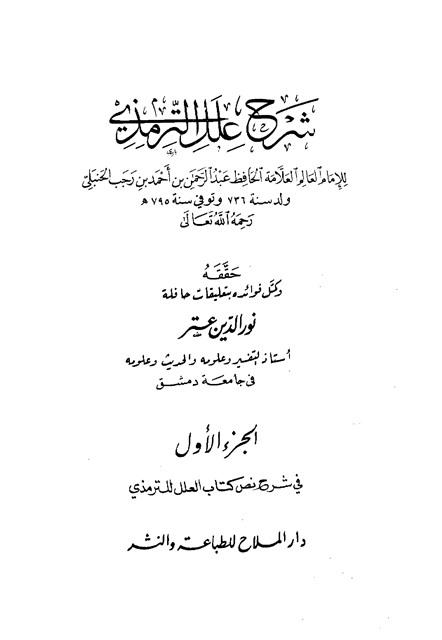 شرح علل الترمذي
للإمام العالم العلامة الحافظ عبد الرحمن بن أحمد بن رجب الحنبلي
ولد سنة ٧٣٦ وتوفي سنة ٧٩٥ هـ
رحمه الله تعالى
حققه
وكمل فوائده بتعليقات حافلة
نور الدين عتر
أستاذ التفسير وعلومه والحديث وعلومه
في جامعة دمشق
الجزء الأول
في شرح نص كتاب العلل للترمذي
دار الملاح للطباعة والنشر